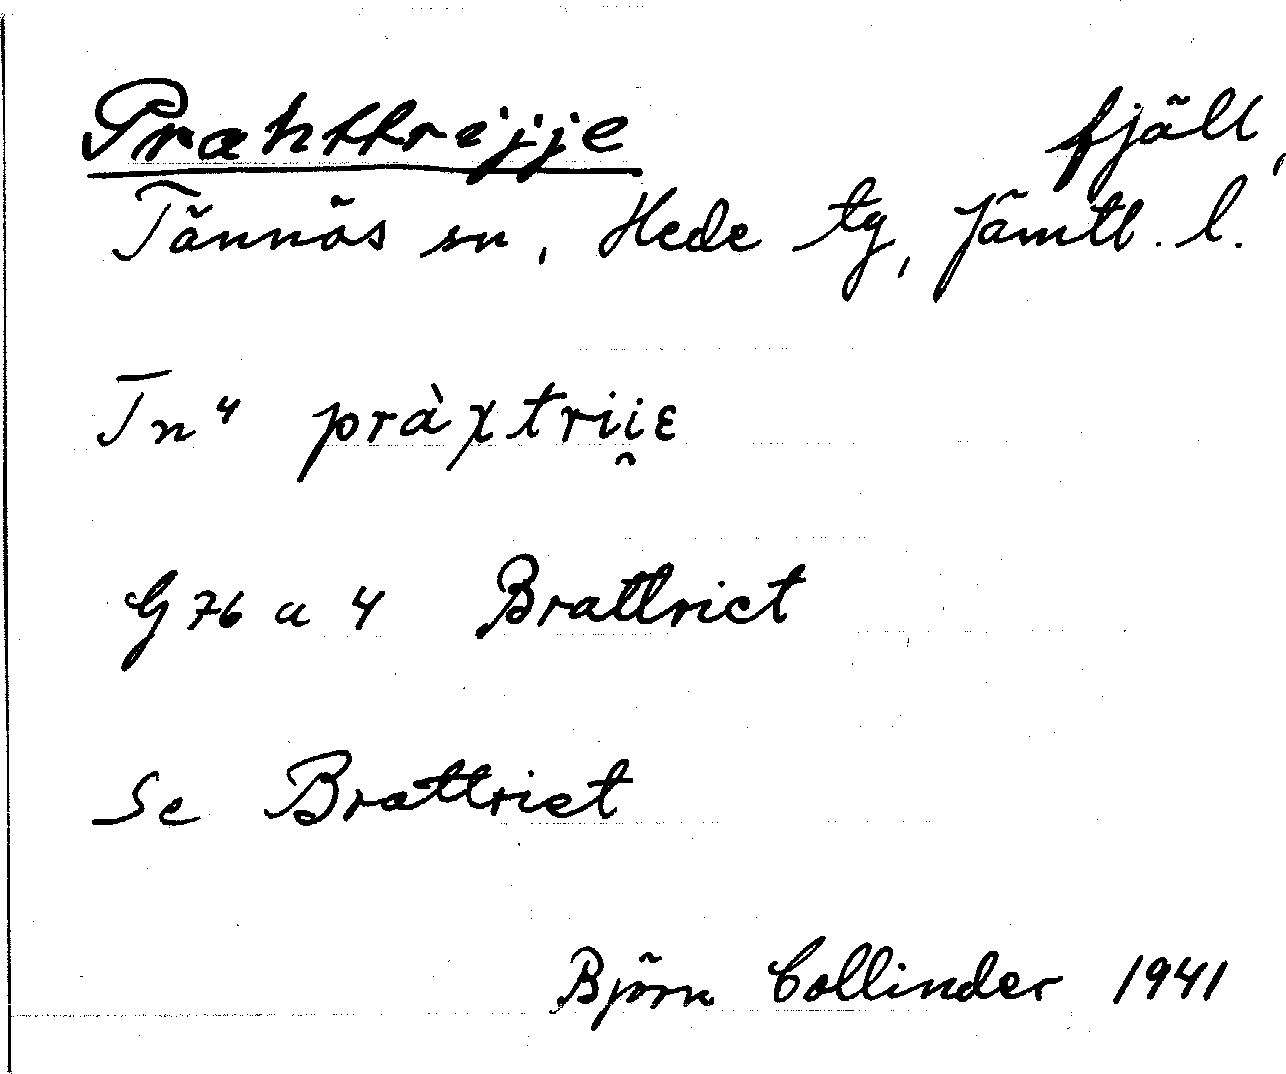 Prahttrijje fjäll,
Tännäs sn, Hede tg, Jämtl. l.
Tn⁴ pràχtrii̯ɛ
G 76 a 4 Brattriet
Se Brattriet
Björn Collinder 1941